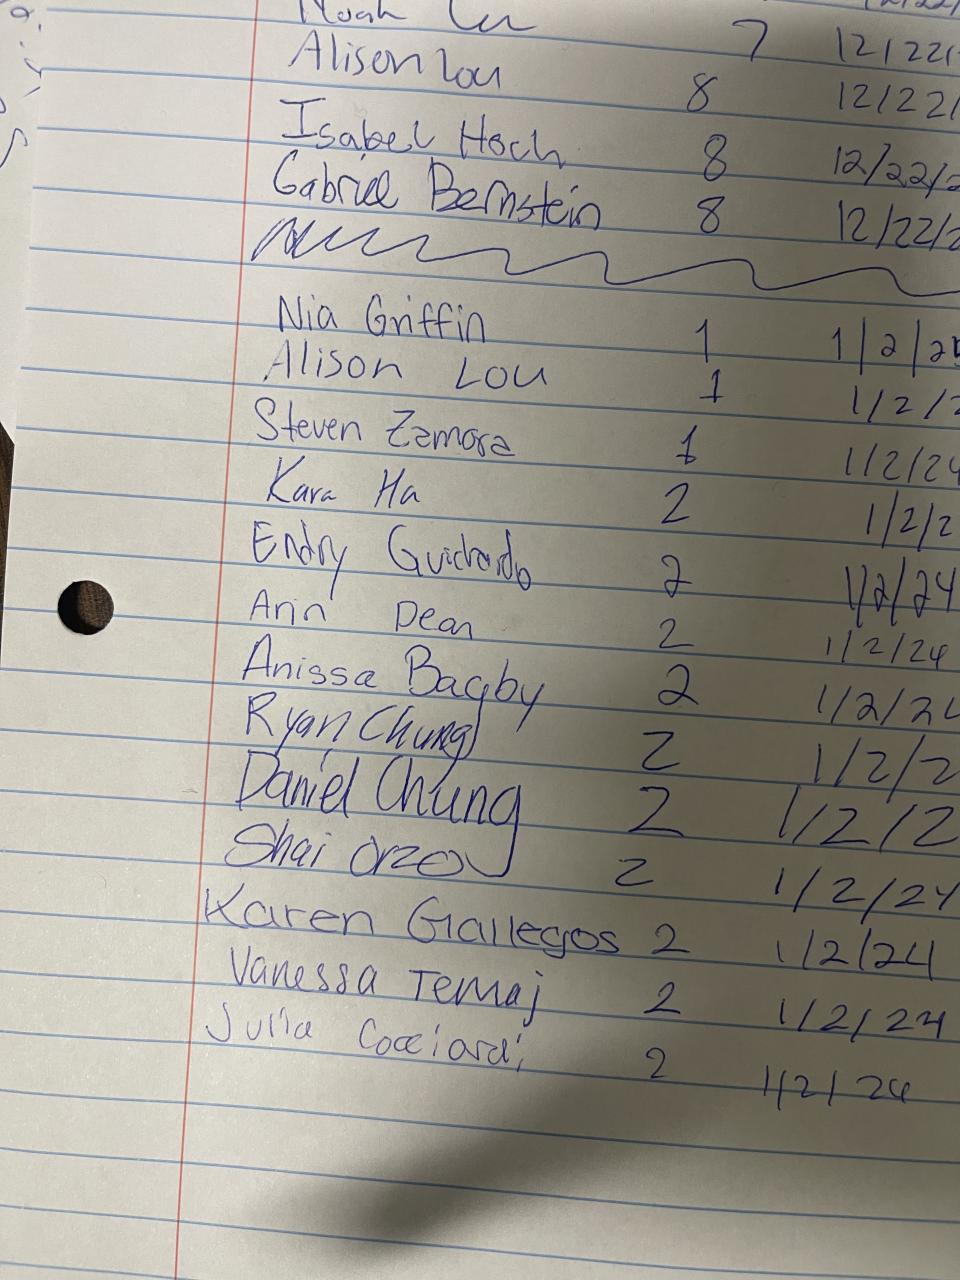 Noah 7 12/22/
Alison Lou 8 12/22/
Isabel Hoch 8 12/22/2
Gabriel Bernstein 8 12/22/2
Nia Griffin 1 1/2/2
Alison Lou 1 1/2/2
Steven Zamora 1 1/2/24
Kara Ha 2 1/2/2
Endry Guichardo 2 1/2/24
Arin Dean 2 1/2/24
Anissa Bagby 2 1/2/24
Ryan Chung 2 1/2/2
Daniel Chung 2 1/2/2
Shai Orzov 2 1/2/24
Karen Gallegos 2 1/2/24
Vanessa Temaj 2 1/2/24
Julia Cocciardi 2 1/2/24